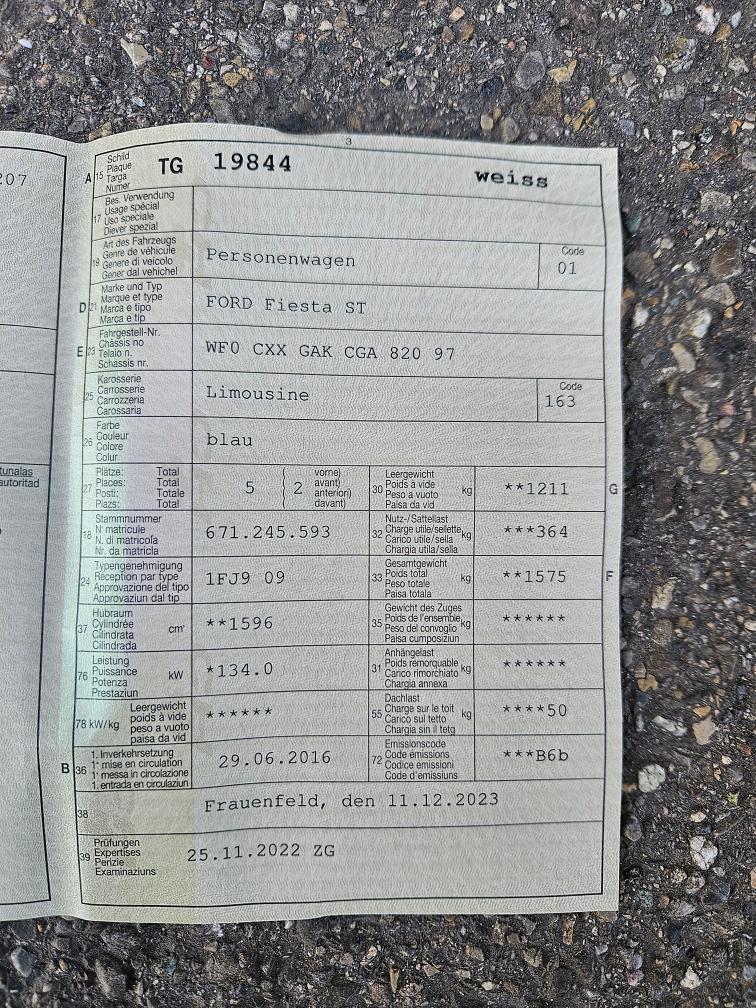 207
3
A 15 Schild
Plaque
Targa
Numer
TG 19844 weiss
17 Bes. Verwendung
Usage spécial
Uso speciale
Diever spezial
19 Art des Fahrzeugs
Genre de véhicule
Genere di veicolo
Gener dal vehichel
Personenwagen
Code
01
D 21 Marke und Typ
Marque et type
Marca e tipo
Marca e tip
FORD Fiesta ST
E 23 Fahrgestell-Nr.
Châssis no
Telaio n.
Schassis nr.
WF0 CXX GAK CGA 820 97
25 Karosserie
Carrosserie
Carrozzeria
Carossaria
Limousine
Code
163
26 Farbe
Couleur
Colore
Colur
blau
tunalas
autoritad
27 Plätze: Total
Places: Total
Posti: Totale
Plazs: Total
5 ( 2 vorne)
avant)
anteriori)
davant)
30 Leergewicht
Poids à vide
Peso a vuoto
Paisa da vid
kg
**1211
G
18 Stammnummer
N° matricule
N. di matricola
Nr. da matricla
671.245.593
32 Nutz-/Sattellast
Charge utile/sellette
Carico utile/sella
Chargia utila/sella
kg
***364
24 Typengenehmigung
Réception par type
Approvazione del tipo
Approvaziun dal tip
1FJ9 09
33 Gesamtgewicht
Poids total
Peso totale
Paisa totala
kg
**1575
F
37 Hubraum
Cylindrée
Cilindrata
Cilindrada
cm³
**1596
35 Gewicht des Zuges
Poids de l'ensemble
Peso del convoglio
Paisa cumposiziun
kg
******
76 Leistung
Puissance
Potenza
Prestaziun
kW
*134.0
31 Anhängelast
Poids remorquable
Carico rimorchiato
Chargia annexa
kg
******
78 kW/kg Leergewicht
poids à vide
peso a vuoto
paisa da vid
******
55 Dachlast
Charge sur le toit
Carico sul tetto
Chargia sin il tetg
kg
****50
B 36 1. Inverkehrsetzung
1re mise en circulation
1a messa in circolazione
1. entrada en circulaziun
29.06.2016
72 Emissionscode
Code émissions
Codice emissioni
Code d'emissiuns
***B6b
38 Frauenfeld, den 11.12.2023
39 Prüfungen
Expertises
Perizie
Examinaziuns
25.11.2022 ZG